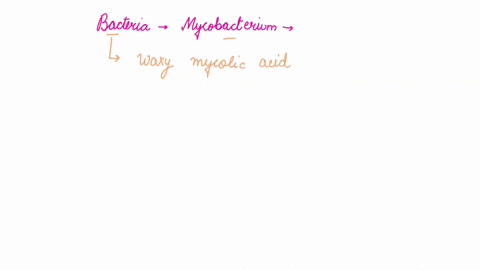 Bacteria → Mycobacterium →
↳ waxy mycolic acid